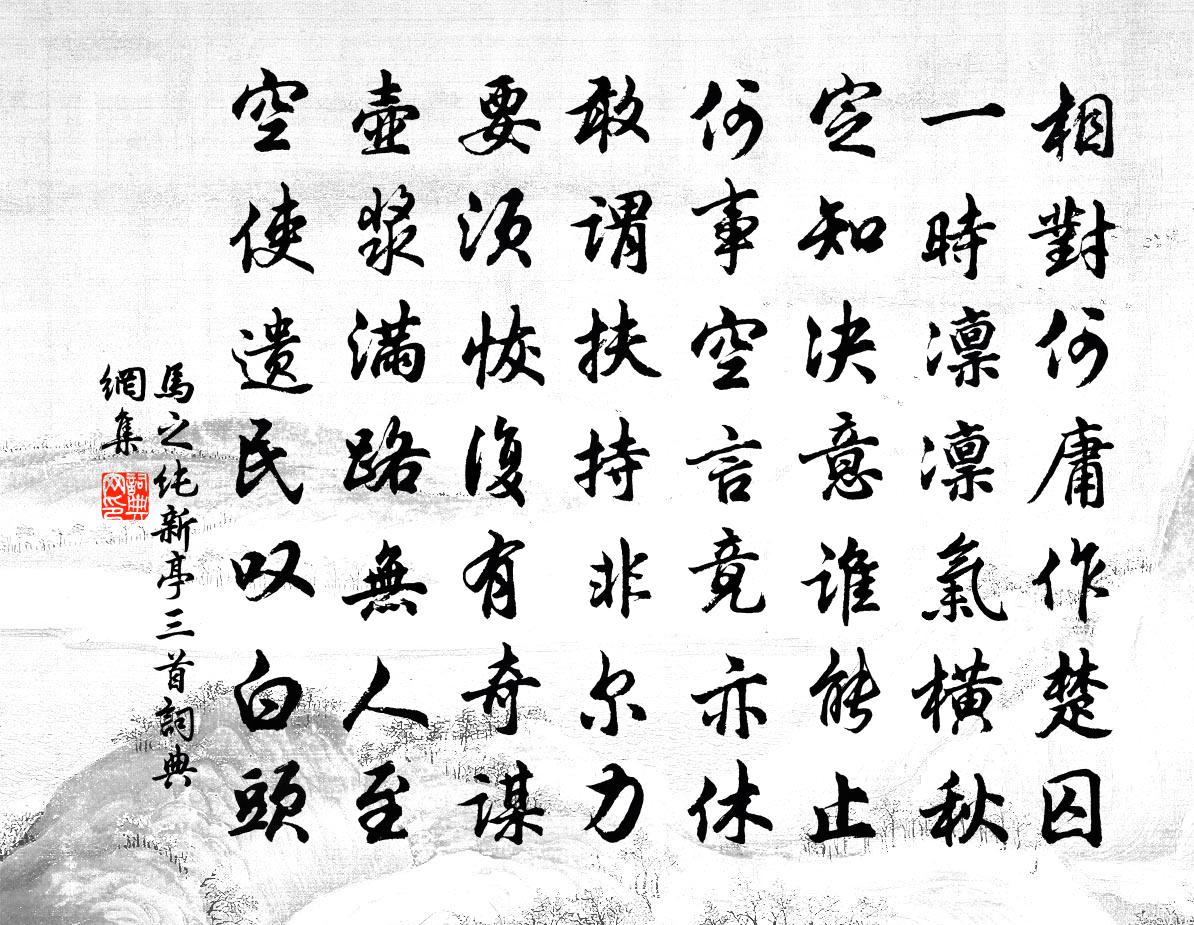 相對何庸作楚囚
一時凛凛氣橫秋
定知決意誰能止
何事空言竟亦休
敢謂扶持非尔力
要須恢復有奇謀
壺漿滿路無人至
空使遺民叹白頭
馬之纯新亭三首詞典
網集
詞典